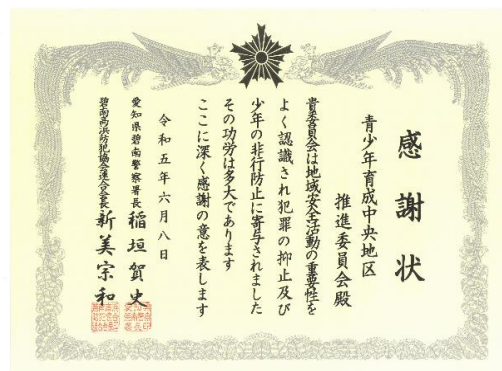 感謝状
青少年育成中央地区
推進委員会殿
貴委員会は地域安全活動の重要性を
よく認識され犯罪の抑止及び
少年の非行防止に寄与されました
その功労は多大であります
ここに深く感謝の意を表します
令和五年六月八日
愛知県碧南警察署長 稲垣賀史
碧南高浜防犯協会連合会長 新美宗和